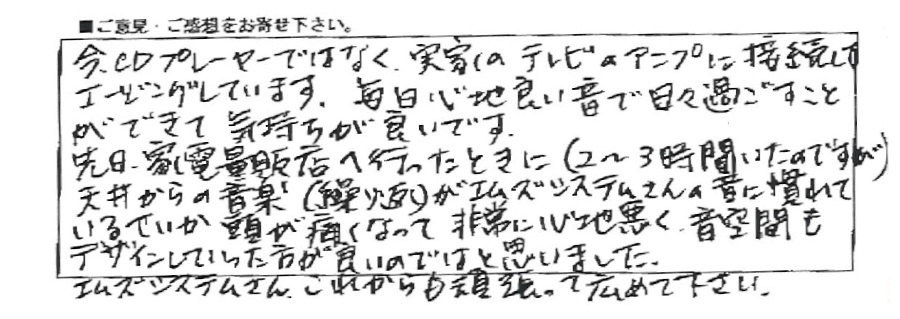 ■ご意見・ご感想をお寄せ下さい。
今、CDプレーヤーではなく、実家のテレビのアンプに接続し
エージングしています。毎日心地良い音で日々過ごすこと
ができて気持ちが良いです。
先日、家電量販店へ行ったときに(2〜3時間いたのですが)
天井からの音楽(繰り返)がエムズシステムさんの音に慣れて
いるせいか頭が痛くなって非常に心地悪く、音空間も
デザインしていった方が良いのではと思いました。
エムズシステムさん、これからも頑張って広めて下さい。